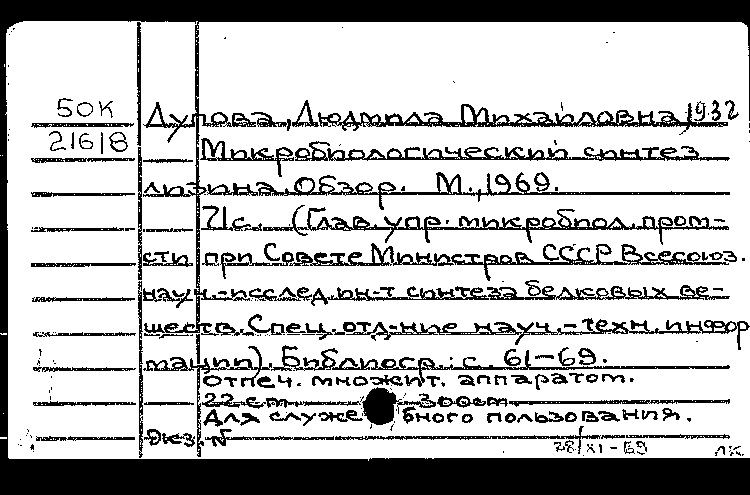 50К
21618
Дупова, Людмила Михайловна, 1932
Микробиологический синтез
лизина. Обзор. М., 1969.
71с. (Глав. упр. микробиол. пром-
сти при Совете Министров СССР Всесоюз.
науч.-исслед. ин-т синтеза белковых ве-
ществ. Спец. отд-ние науч.-техн. инфор
мации). Библиогр.: с. 61-69.
Отпеч. множит. аппаратом.
22 cm 300cm
Для служебного пользования.
Экз. №
28/XI-69 ЛК